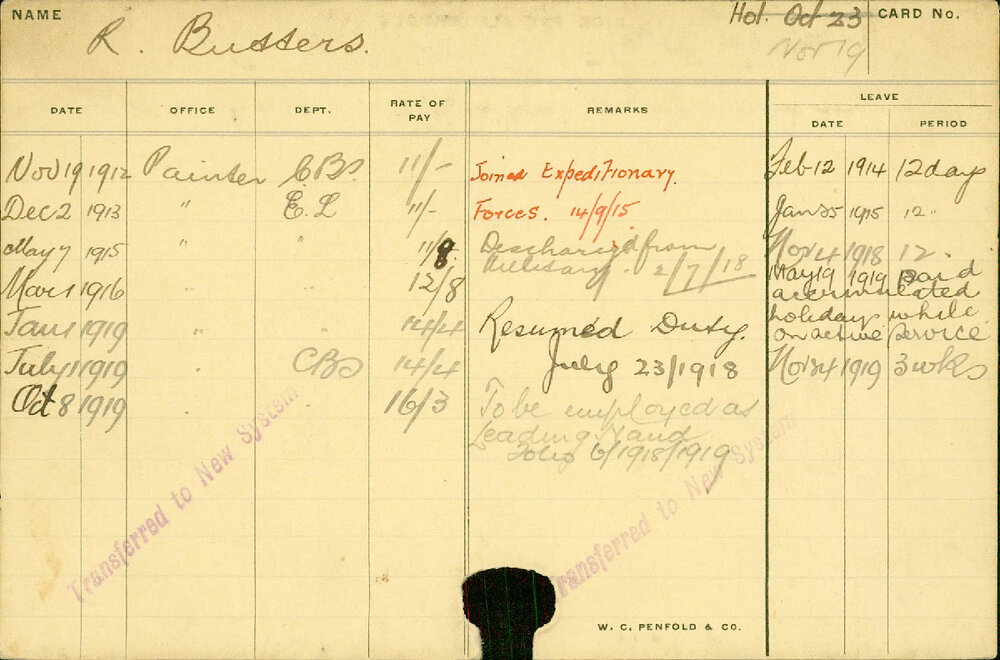 NAME
R. Butters.
Hol. Oct 23
Nov 19
CARD No.
DATE OFFICE DEPT. RATE OF PAY REMARKS LEAVE
DATE PERIOD
Nov 19 1912 Painter CBS. 11/-
Dec 2 1913 " E.L 11/-
May 7 1915 " " 11/8
Mar 1 1916 12/8
Jan 1 1919 " 14/4
July 1 1919 CBS 14/4
Oct 8 1919 16/3
Joined Expeditionary.
Forces. 14/9/15
Discharged from
Military. 2/7/18
Resumed Duty.
July 23/1918
To be employed as
Leading Hand
Folio 6/1918/1919
Feb 12 1914 12 days
Jan 25 1915 12.
Nov 4 1918 12.
May 19 1919 paid
accumulated
holidays while
on active service
Nov 24 1919 3 wks
Transferred to New System
Transferred to New System
W. C. PENFOLD & CO.